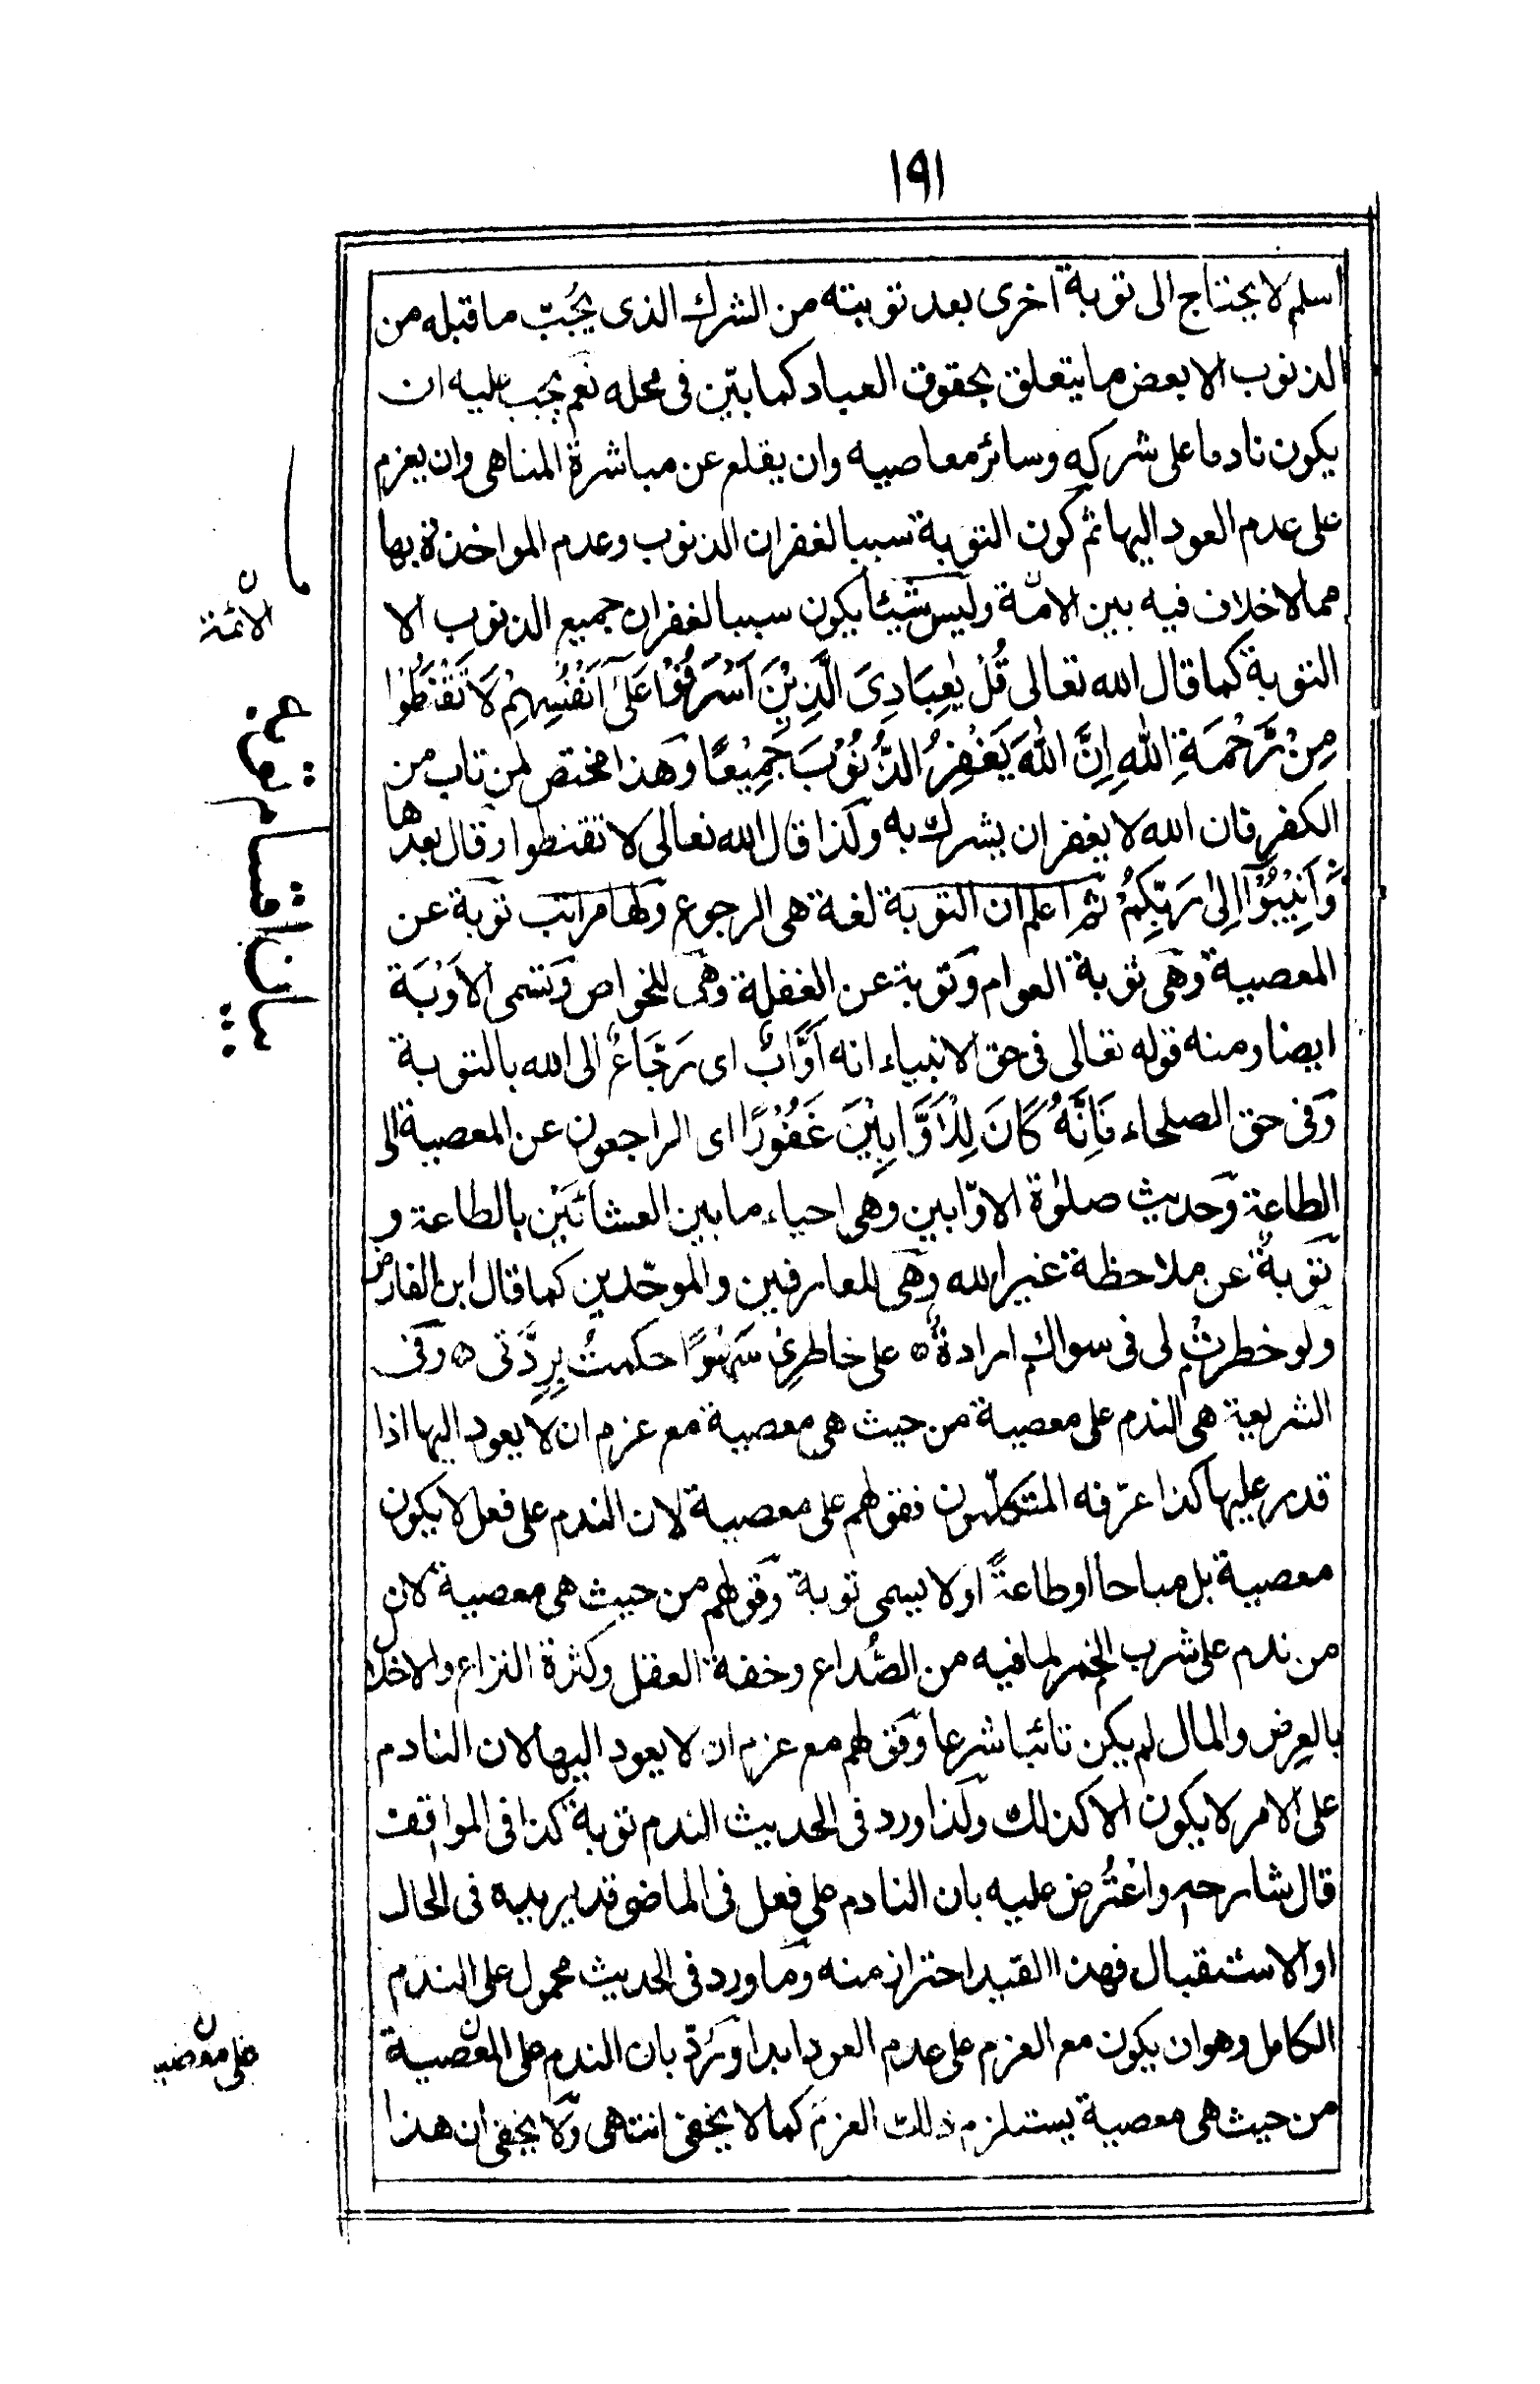 ١٩١
اسلم لا يحتاج الى توبة اخرى بعد توبته من الشرك الذى يَجُبّ ما قبله من
الذنوب الا بعض ما يتعلق بحقوق العباد كما بيّن فى محله نعم يجب عليه ان
يكون نادما على شركه وسائر معاصيه وان يقلع عن مباشرة المناهى وان يعزم
على عدم العود اليها ثم كون التوبة سببا لغفران الذنوب وعدم المواخذة بها
مما لا خلاف فيه بين الامّة وليس شيئا يكون سببا لغفران جميع الذنوب الا
التوبة كما قال الله تعالى قُلْ يٰعِبَادِىَ الَّذِيْنَ اَسْرَفُوْا عَلٰٓى اَنْفُسِهِمْ لَا تَقْنَطُوْا
مِنْ رَّحْمَةِ اللهِ اِنَّ اللهَ يَغْفِرُ الذُّنُوْبَ جَمِيْعًا وهذا مختص لمن تاب من
الكفر فان الله لا يغفر ان يشرك به ولذا قال الله تعالى لا تقنطوا وقال بعدها
وَّاَنِيْبُوْٓا اِلٰى رَبِّكُمْ ثم اعلم ان التوبة لغة هى الرجوع ولها مراتب توبة عن
المعصية وهى توبة العوام وتوبة عن الغفلة وهى للخواص وتسمى الاَوْبَة
ايضا ومنه قوله تعالى فى حق الانبياء انه اَوَّابٌ اى رَجَّاعٌ الى الله بالتوبة
وفى حق الصلحاء فَاِنَّهُ كَانَ لِلْاَوَّابِيْنَ غَفُوْرًا اى الراجعون عن المعصية الى
الطاعة وحديث صلوٰة الاوّابين وهى احياء ما بين العشائَيْن بالطاعة و
توبةٌ عن ملاحظة غير الله وهى للعارفين والموحّدين كما قال ابن الفارض
ولو خطرتْ لى فى سواك ارادةٌ ۞ على خاطرِىْ سَهْوًا حكمتُ بِرِدَّتى ۞ وفى
الشريعة هى الندم على معصية من حيث هى معصية مع عزم ان لا يعود اليها اذا
قدر عليها كذا عرّفه المتكلّمون فقولهم على معصية لان الندم على فعل لا يكون
معصية بل مباحا او طاعةً او لا يسمى توبة وقولهم من حيث هى معصية لان
من ندم على شرب الخمر لما فيه من الصُّداع وخفة العقل وكثرة النزاع والاخلال
بالعِرض والمال لم يكن تائبا شرعا وقولهم مع عزم ان لا يعود اليها لان النادم
على الامر لا يكون الا كذلك ولذا ورد فى الحديث الندم توبة كذا فى المواقف
قال شارحه واعْتُرض عليه بان النادم على فعل فى الماضى قد يريده فى الحال
او الاستقبال فهذا القيد احتراز منه وما ورد فى الحديث محمول على الندم
الكامل وهو ان يكون مع العزم على عدم العود ابدا ورُدّ بان الندم على المعصية
من حيث هى معصية يستلزم ذلك العزم كما لا يخفى انتهى ولا يخفى ان هذا
الائمة ن
بيان اقسام توبة
على معصية ن